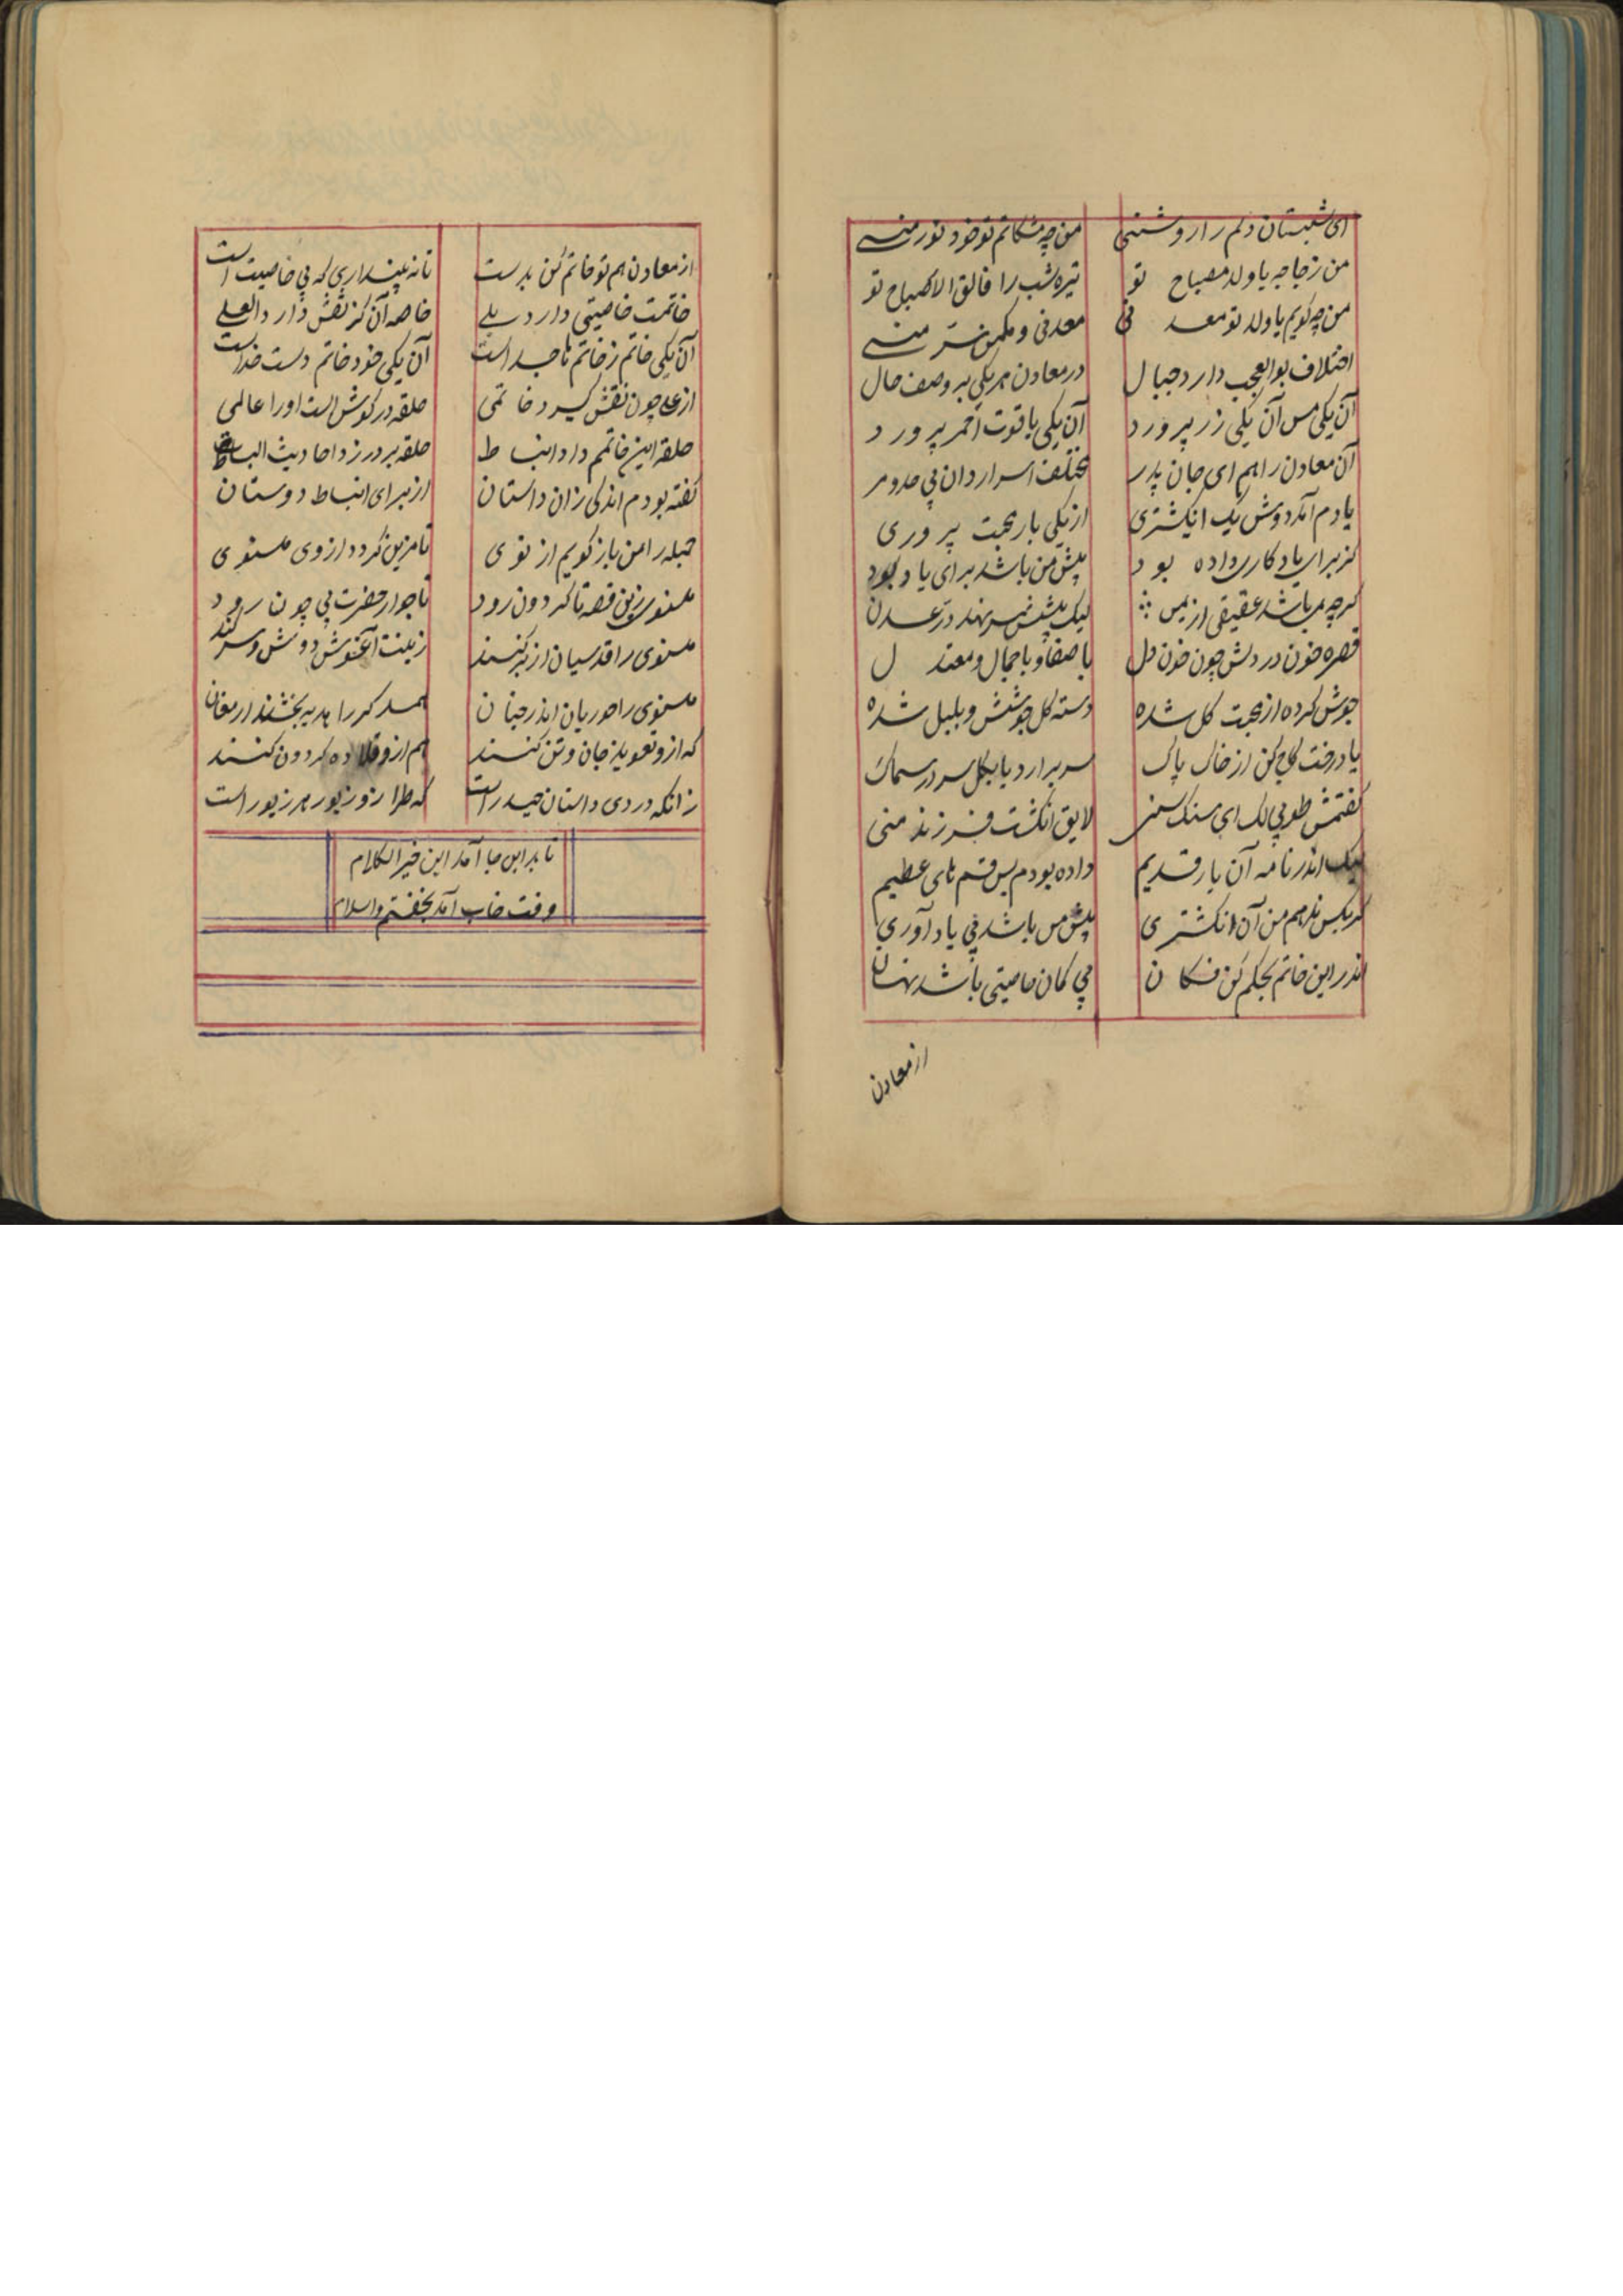 ای شبستان دلم را روشنی
من چه مشکاتم تو خود نور منی
من زجاجه یا ولد مصباح تو
تیره شب را فالق الاصباح تو
من چه گویم یا ولد تو معدنی
معدنی و مکمن سرّ منی
اختلاف بوالعجب دارد جبال
در معادن هر یکی بر وصف حال
آن یکی مس آن یکی زر پرورد
آن یکی یاقوت احمر پرورد
آن معادن را هم ای جان پدر
مختلف اسرار دان بی حد و مر
یادم آمد دوش یک انگشتری
از یکی یار محبت پروری
کز برای یادکاری داده بود
پیش من باشد برای یادبود
گرچه می باشد عقیقی از یمن
لیک پیشش سر نهد درّ عدن
قطره خون در دلش چون خون دل
با صفا و با جمال و معتدل
جوش کرده از محبت گل شده
دسته گل جوشش و بلبل شده
یا درخت گل کن از خاک پاک
سر برارد یا بگل سر در سماک
گفتمش طوبی لک ای سنگ سنی
لایق انگشت فرزند منی
لیک اندر نامه آن یار قدیم
داده بودم پس قسم های عظیم
که بکس ندهم من آن انگشتری
پیش من باشد پی یادآوری
اندر این خاتم بحکم کن فکان
بی گمان خاصیتی باشد نهان
از معادن
از معادن هم تو خاتم کن بدست
تا نه پنداری که بی خاصیت است
خاتمت خاصیتی دارد بلی
خاصه آن کز نقش دارد العلی
آن یکی خاتم ز خاتم ها جداست
آن یکی خود خاتم دست خداست
از علی چون نقش گیرد خاتمی
حلقه در گوش است او را عالمی
حلقه این خاتمم داد انبساط
حلقه بر در زد احادیث البساط
گفته بودم اندکی زان داستان
از برای انبساط دوستان
جمله را من باز گویم از نوی
تا مزین گردد از وی مسنوی
مسنوی زین قصه تا گردون رود
تا جوار حضرت بی چون رود
مسنوی را قدسیان از بر کنند
زینت آغوش و دوش و سر کنند
مسنوی را حوریان اندر جنان
همدگر را هدیه بخشند ارمغان
که ازو تعویذ جان و تن کنند
هم ازو قلاده گردون کنند
زانکه در وی داستان حیدر است
که طراز و زیور هر زیور است
تا بدین جا آمد این خیر الکلام
وقت خاب آمد بخفتم والسلام